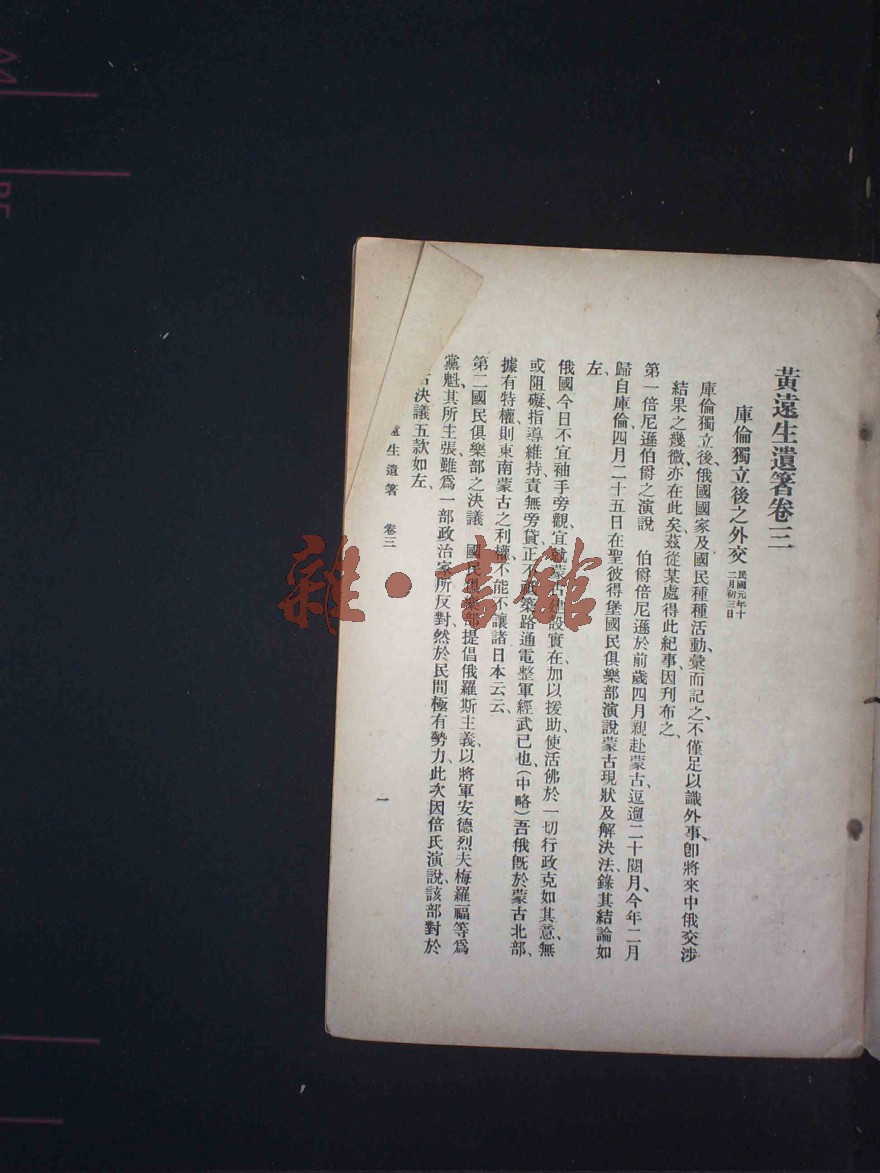 黃遠生遺箸卷三
庫倫獨立後之外交 民國元年十二月初三日
庫倫獨立後、俄國國家及國民種種活動、彙而記之、不僅足以識外事、卽將來中俄交涉
結果之幾微、亦在此矣、茲從某處得此紀事、因刋布之、
第一倍尼遜伯爵之演說 伯爵倍尼遜於前歲四月親赴蒙古、逗遛二十閱月、今年二月
歸自庫倫、四月二十五日在聖彼得堡國民俱樂部演說蒙古現狀及解決法、錄其結論如
左、
俄國今日不宜袖手旁觀、宜就蒙古建設實在加以援助、使活佛於一切行政克如其意、無
或阻礙、指導維持、責無旁貸、正不祇築路通電整軍經武已也、(中略)吾俄旣於蒙古北部、
據有特權、則東南蒙古之利權、不能不讓諸日本云云、
第二國民俱樂部之決議 國民俱樂部提倡俄羅斯主義、以將軍安德烈夫梅羅福等爲
黨魁、其所主張、雖爲一部政治家所反對、然於民間極有勢力、此次因倍氏演說、該部對於
決議五款如左、
生遺箸 卷三
一
雜·書館